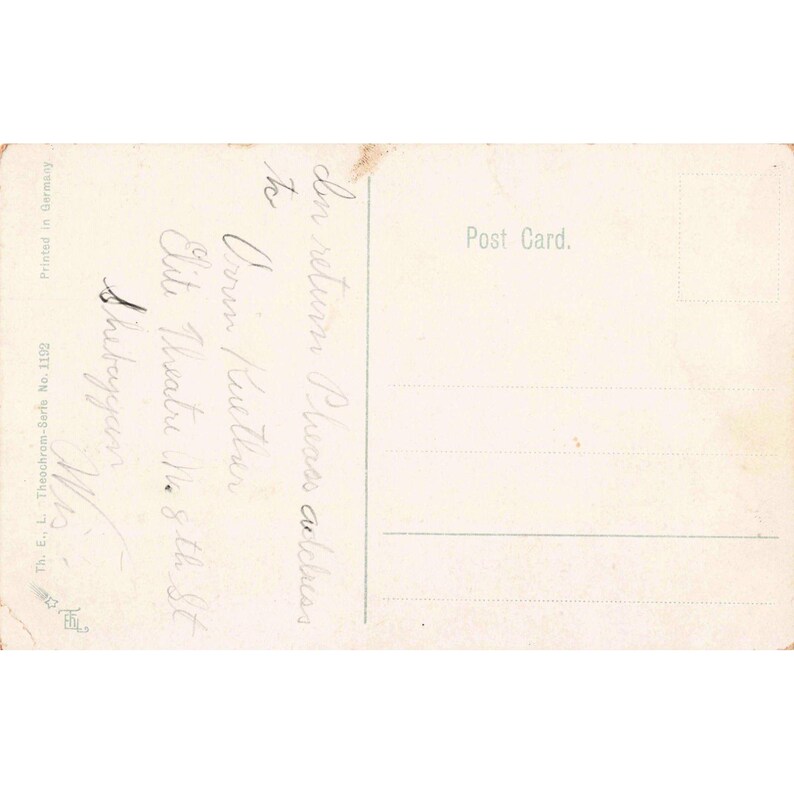 Post Card.
In return Pleass address
to
Orrin Kuether
Elite Theatre N. 8th St
Sheboygan
Wis.
Th. E., L. Theochrom-Serie No. 1192 Printed in Germany